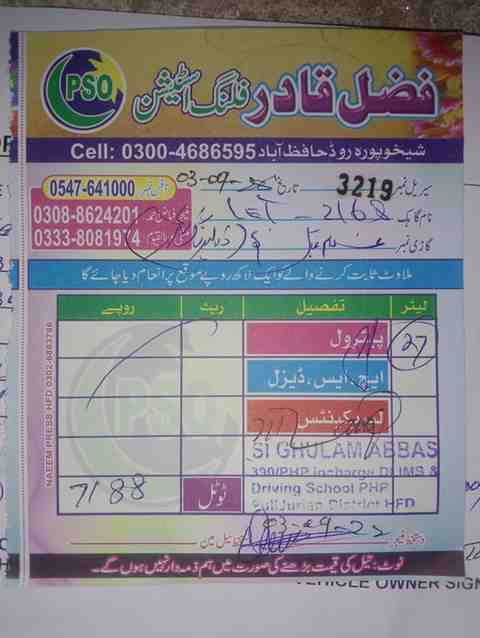 PSO
فضل قادر فلنگ اسٹیشن
Cell: 0300-4686595 شیخوپورہ روڈ حافظ آباد
سیریل نمبر 3219 تاریخ 03-09-22
0547-641000
0308-8624201
0333-8081974
نام گاہک LET-2168
گاڑی نمبر غلام عباس
ملاوٹ ثابت کرنے والے کو ایک لاکھ روپے موقع پر انعام دیا جائے گا
لیٹر تفصیل ریٹ روپے
27 پیٹرول
ایچ۔ایس۔ڈیزل
لبریکینٹس
SI GHULAM ABBAS
390/PHP incharge DLIMS &
Driving School PHP
District HFD
ٹوٹل 7188
03-09-22
دستخط سیل مین
نوٹ: تیل کی قیمت بڑھنے کی صورت میں ہم ذمہ دار نہیں ہوں گے۔
NAEEM PRESS HFD 0302-6883786
VEHICLE OWNER SIGN